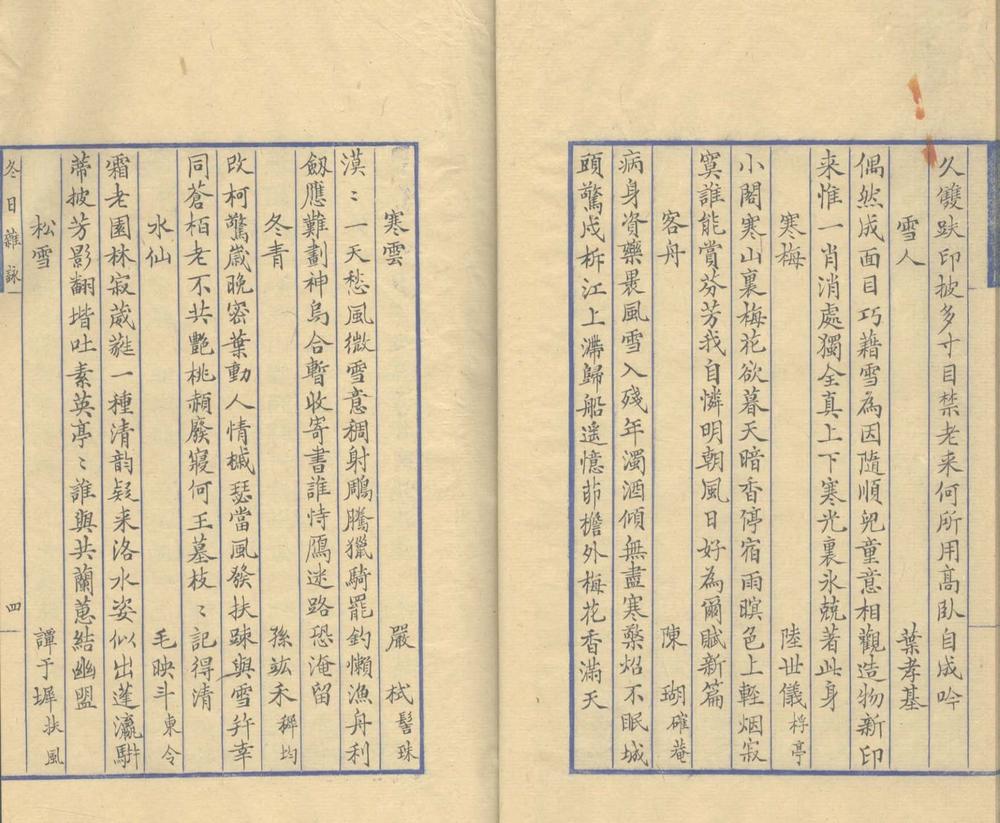 久雙趺印披多寸目禁老来何所用高臥自成吟
雪人 葉孝基
偶然成面目巧藉雪為因隨順兒童意相觀造物新印
来惟一肖消處獨全真上下寒光裏氷兢著此身
寒梅 陸世儀桴亭
小閣寒山裏梅花欲暮天暗香停宿雨暝色上輕烟寂
寞誰能賞芬芳我自憐明朝風日好為爾賦新篇
客舟 陳瑚確菴
病身資藥裹風雪入殘年濁酒傾無盡寒檠炤不眠城
頭驚戍柝江上滯歸船遥憶茆檐外梅花香滿天
寒雲 嚴栻髻珠
漠〻一天愁風微雪意稠射鵰騰獵騎罷釣懶漁舟利
劔應難劃神烏合暫收寄書誰恃鴈迷路恐淹留
冬青 孫竑禾穉均
改柯驚歲晚密葉動人情槭瑟當風發扶踈與雪幷幸
同蒼栢老不共艷桃赬廢寢何王墓枝〻記得清
水仙 毛映斗東令
霜老園林寂葳蕤一種清韵疑来洛水姿似出蓬瀛駢
蒂披芳影翻堦吐素英亭〻誰與共蘭蕙結幽盟
松雪 譚于墀扶風
冬日雜詠 四